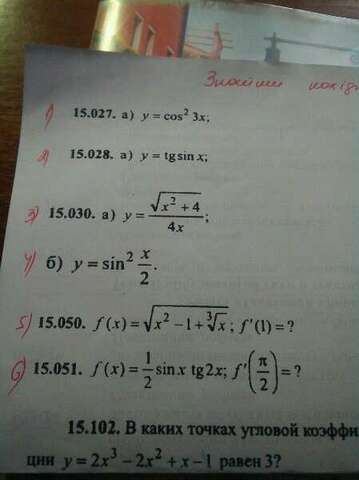 Знайти
1) 15.027. а) y = cos² 3x;
2) 15.028. а) y = tg sin x;
3) 15.030. а) y = √(x² + 4) / 4x;
4) б) y = sin² x/2.
5) 15.050. f(x) = √(x² − 1 + ∛x); f′(1) = ?
6) 15.051. f(x) = 1/2 sin x tg 2x; f′(π/2) = ?
15.102. В каких точках угловой коэффи
ции y = 2x³ − 2x² + x − 1 равен 3?